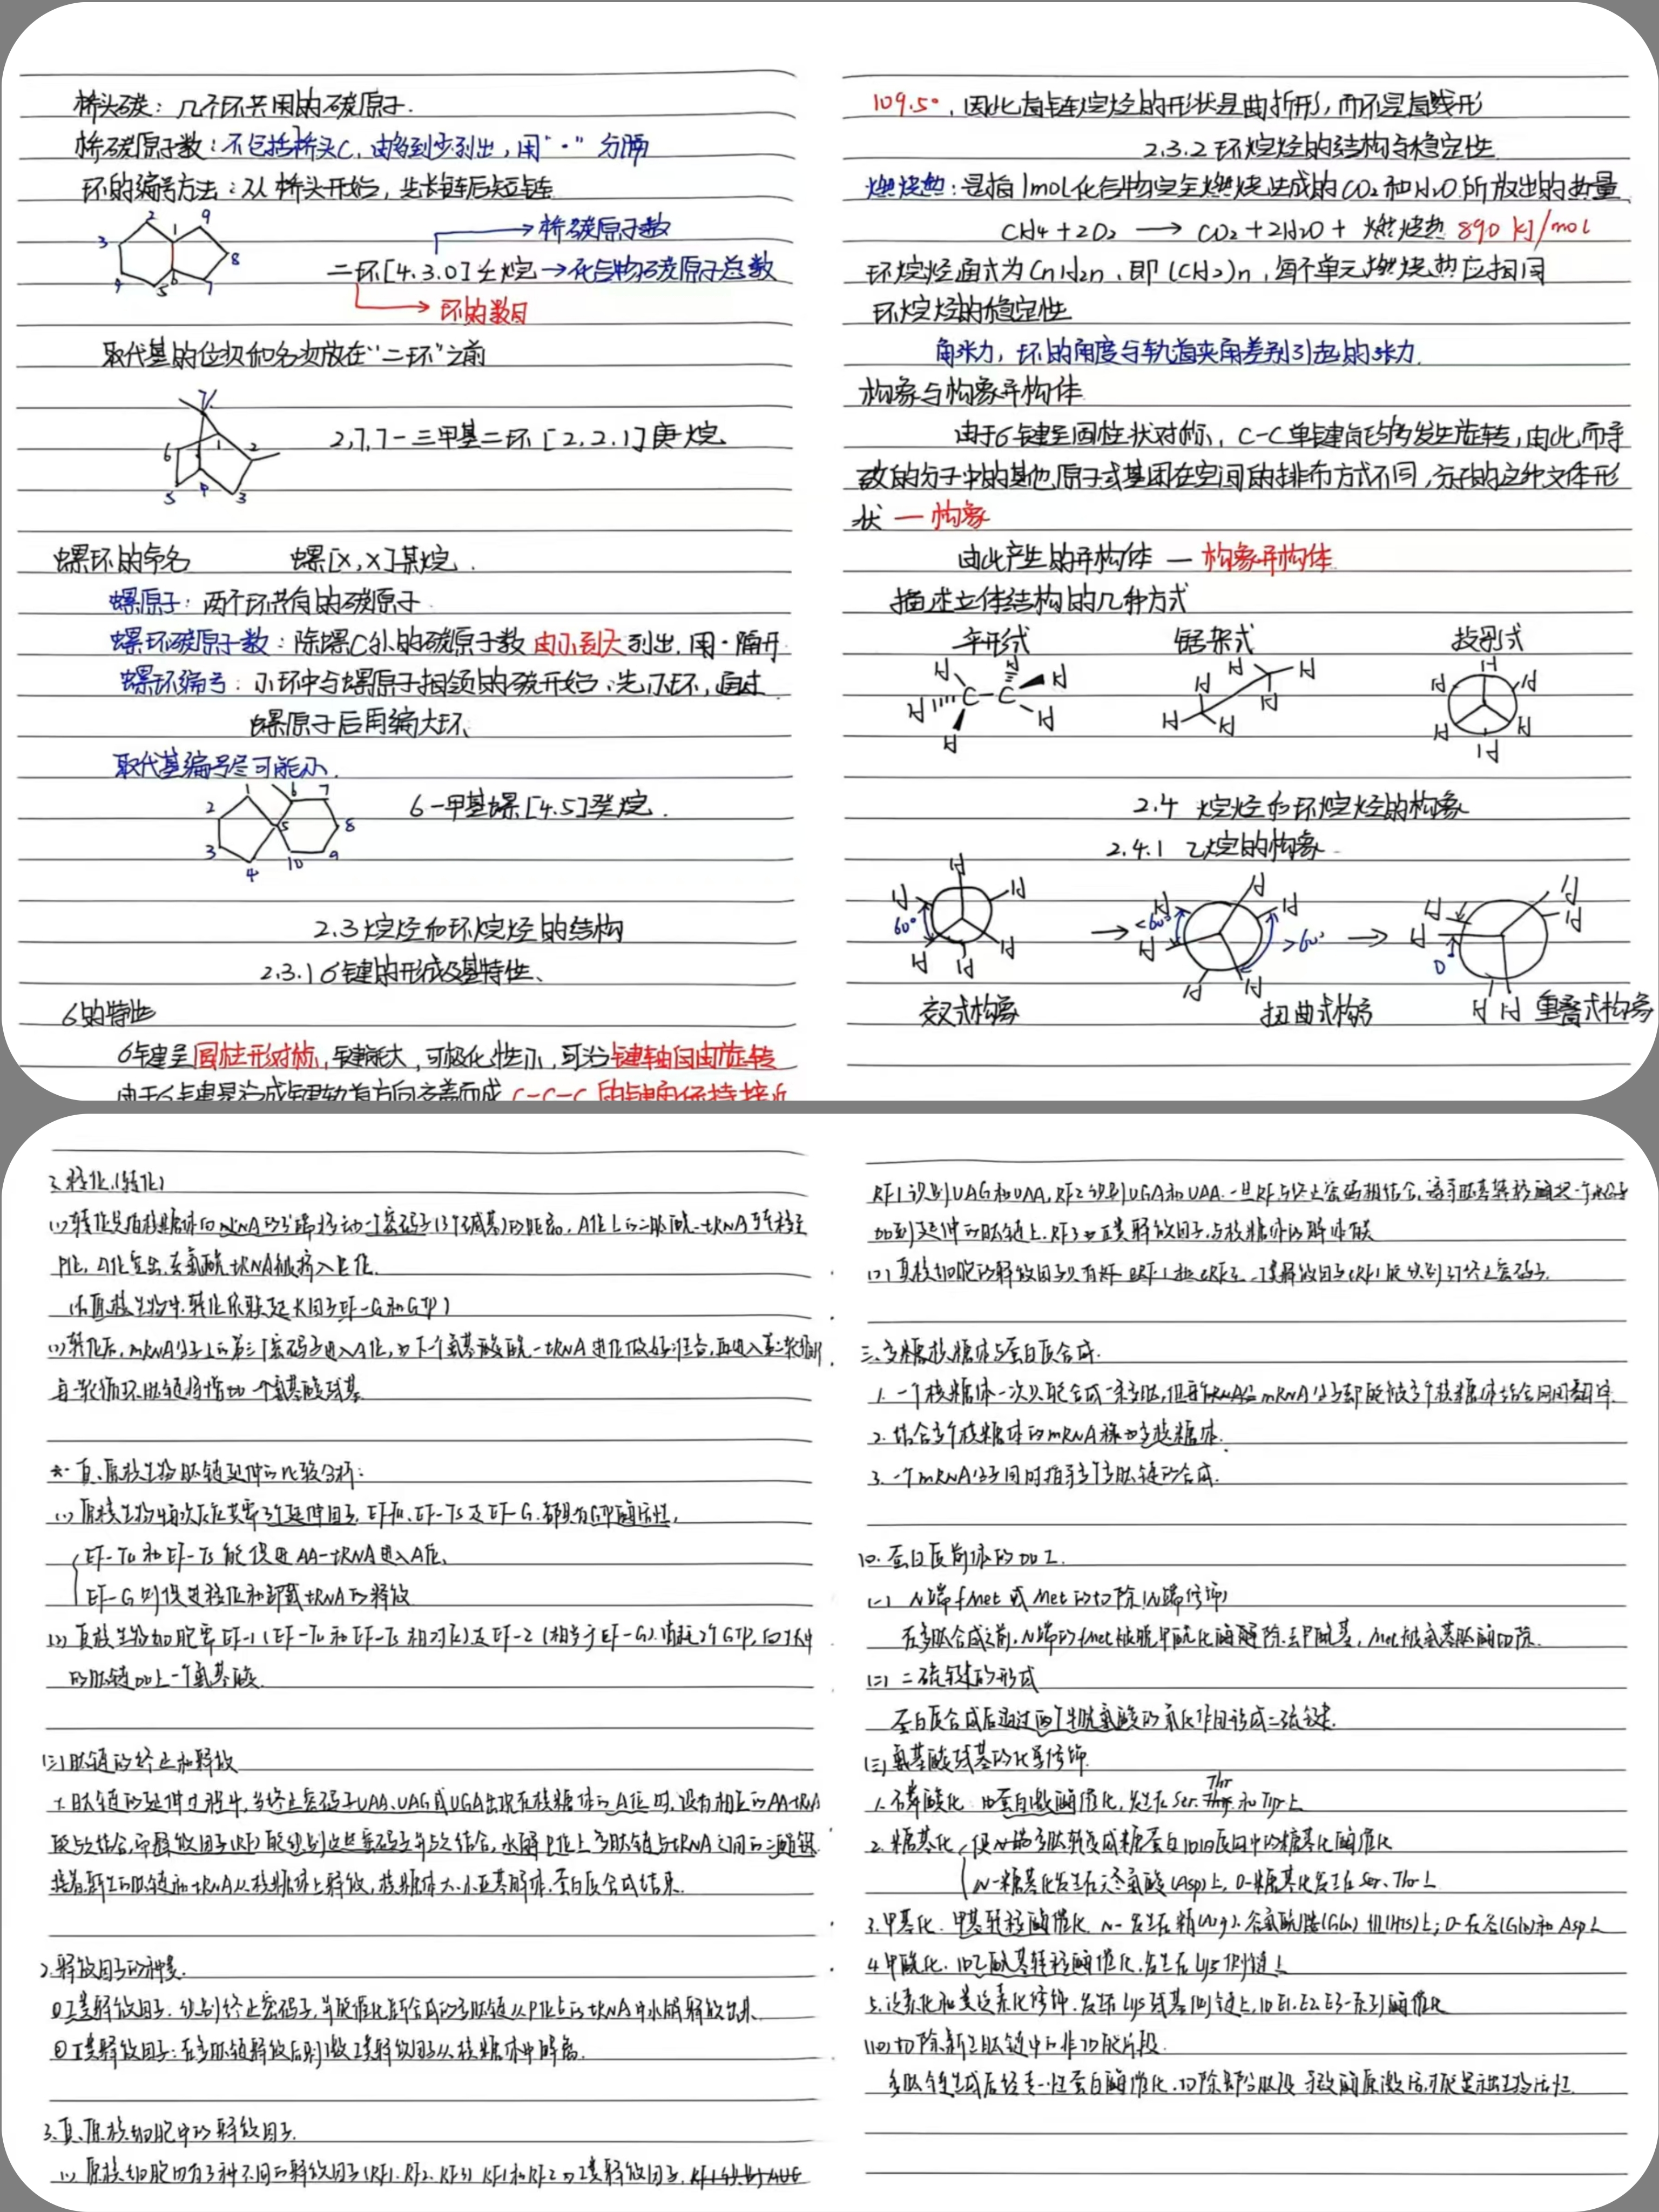 桥头碳：几个环共用的碳原子.
桥碳原子数：不包括桥头C，由多到少列出，用"·"分隔
环的编号方法：从桥头开始，先长链后短链
2 9
3 1
8
4 5 6 7
桥碳原子数
二环[4.3.0]壬烷→化合物碳原子总数
环的数目
取代基的位次和名次放在"二环"之前
7
6 1 2
5 4 3
2,7,7-三甲基二环[2.2.1]庚烷
螺环的命名 螺[X,X]某烷.
螺原子：两个环共有的碳原子
螺环碳原子数：除螺C外的碳原子数由小到大列出，用·隔开
螺环编号：小环中与螺原子相领的碳开始；先小环，通过
螺原子后再编大环
取代基编号尽可能小.
1 6 7
2 5 8
3 4 10 9
6-甲基螺[4.5]癸烷.
2.3烷烃和环烷烃的结构
2.3.1 6键的形成及其特性、
6的特性
6键呈圆柱形对称，键能大，可极化性小，可沿键轴自由旋转
由于6键是沿成键轨道方向交盖而成 C-C-C的键角保持接近
109.5°，因此直链烷烃的形状是曲折形，而不是直线形
2.3.2环烷烃的结构与稳定性
燃烧热：是指1mol化合物完全燃烧生成的CO2和H2O所放出的热量
CH4+2O2 → CO2+2H2O+ 燃烧热 890 kJ/mol
环烷烃通式为CnH2n，即(CH2)n，每个单元燃烧热应相同
环烷烃的稳定性
角张力，环的角度与轨道夹角差别引起的张力.
构象与构象异构体
由于6键呈圆柱状对称，C-C单键能够发生旋转，由此而导
致的分子中的其他原子或基团在空间的排布方式不同，分子的这种立体形
状 — 构象
由此产生的异构体 — 构象异构体
描述立体结构的几种方式
伞形式 锯架式 投影式
H H H H C-C H H
H H H H H H
H H H H H H
2.4 烷烃和环烷烃的构象
2.4.1 乙烷的构象
H H H H H H 60°
→ <60° H H H H H H >60°
→ H H 0 H H H H
交叉式构象 扭曲式构象 重叠式构象
3.移位(转位)
(1)转位是指核糖体向mRNA的3'端移动一个密码子(3个碱基)的距离，A位上的二肽酰-tRNA于转移至
P位，A位空出，去氨酰tRNA被挤入E位.
(在原核生物中，转位依赖延长因子EF-G和GTP)
(2)转位后，mRNA分子上的第三个密码子进入A位，为下个氨基酸酰-tRNA进位做好准备，再进入第二轮循环，
每一轮循环，肽链将增加一个氨基酸残基
☆ 真、原核生物肽链延伸的比较分析：
(1)原核生物每次反应共需3个延伸因子，EF-Tu、EF-Ts及EF-G，都具有GTP酶活性，
EF-Tu和EF-Ts能促进AA-tRNA进入A位、
EF-G则促进移位和卸载tRNA的释放
(2)真核生物细胞需EF-1(EF-Tu和EF-Ts相对应)及EF-2(相当于EF-G).消耗2个GTP，向生长中
的肽链加上一个氨基酸.
(三)肽链的终止和释放
1.肽链的延伸过程中，当终止密码子UAA、UAG或UGA出现在核糖体的A位时，没有相应的AA-tRNA
能与之结合，而释放因子(RF)能识别这些密码子并与之结合，水解P位上多肽链与tRNA之间的二酯键.
接着，新生的肽链和tRNA从核糖体上释放，核糖体大、小亚基解体，蛋白质合成结束.
2.释放因子的种类.
①I类释放因子：识别终止密码子，并能催化新合成的多肽链从P位上的tRNA中水解释放出来.
②II类释放因子：在多肽链释放后刺激I类释放因子从核糖体中解离.
3.真、原核细胞中的释放因子.
(1)原核细胞内有3种不同的释放因子(RF1、RF2、RF3) RF1和RF2为I类释放因子，RF1识别AUG
RF1识别UAG和UAA，RF2识别UGA和UAA.一旦RF与终止密码相结合，诱导肽基转移酶把一个水分子
加到延伸的肽链上.RF3为II类释放因子，与核糖体的解体有关
(2)真核细胞的释放因子只有 eRF1和eRF3.I类释放因子eRF1能识别3个终止密码子.
三、多聚核糖体与蛋白质合成.
1.一个核糖体一次只能合成一条多肽，但每个mRNA分子却能被多个核糖体结合同时翻译.
2.结合多个核糖体的mRNA称为多核糖体.
3.一个mRNA分子同时指导多个多肽链的合成.
四.蛋白质前体的加工.
(一) N端fMet或Met的切除(N端修饰)
在多肽合成之前，N端的fMet被脱甲酰化酶解除去甲酰基，Met被氨基肽酶切除.
(二)二硫键的形成
蛋白质合成后通过两个半胱氨酸的氧化作用形成二硫键.
(三)氨基酸残基的化学修饰
Thr
1.磷酸化：由蛋白激酶催化，发生在Ser、和Tyr上
2.糖基化 使多肽转变成糖蛋白，由内质网中的糖基化酶催化
N-糖基化发生在天冬氨酸(Asp)上，O-糖基化发生在Ser、Thr上
3.甲基化 甲基转移酶催化 N-发生在精(Arg)、谷氨酰胺(Gln) 组(His)上；O-在谷(Glu)和Asp上
4.甲酰化.由乙酰基转移酶催化，发生在Lys侧链上
5.泛素化和类泛素化修饰.发生在Lys残基侧链上，由E1.E2.E3一系列酶催化
(四)切除新生肽链中的非功能片段.
多肽链生成后经专一性蛋白酶催化，切除部分肽段 导致酶原激活，才能显示出生物活性.